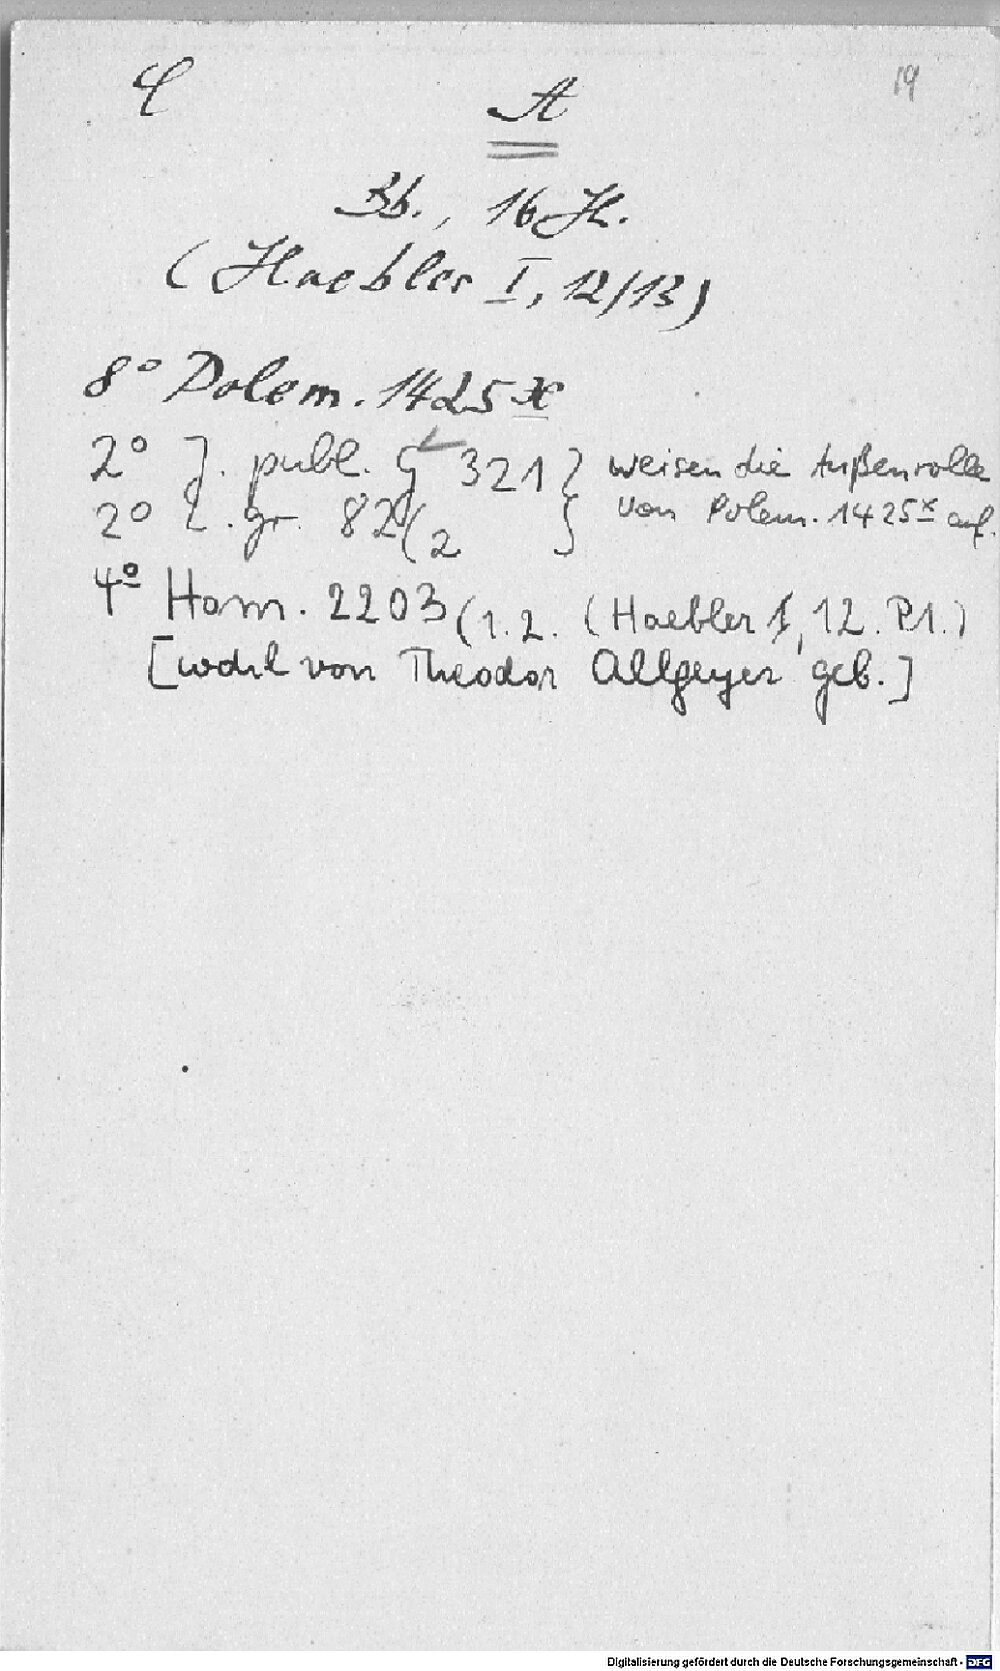 19
A
Bb., 16 Jh.
(Haebler I, 12/13)
8° Polem. 1425 x
2° J. publ. G 321 } weisen die Außenrolle
2° L. gr. 82(2 } von Polem. 1425 x auf.
4° Hom. 2203(1.2. (Haebler I, 12. Pl.)
[wohl von Theodor Allgeyer geb.]
Digitalisierung gefördert durch die Deutsche Forschungsgemeinschaft - DFG